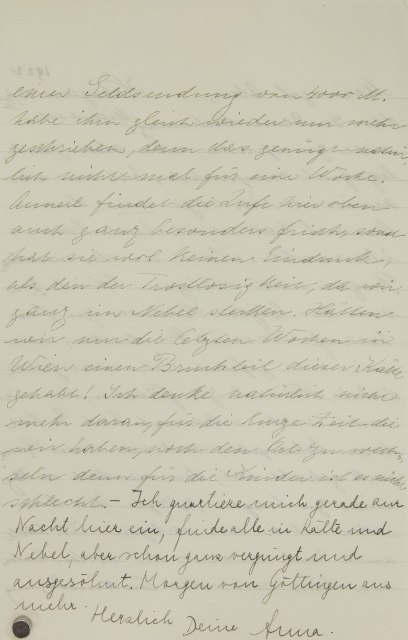 einer Geldsendung von 4000 M.
habe ihm gleich wieder um mehr
geschrieben, denn das genügt natür-
lich nicht mal für eine Woche.
Annerl findet die Luft hier oben
auch ganz besonders frisch, sonst
hat sie wol keinen Eindruck
als den der Trostlosigkeit, da wir
ganz im Nebel stecken. Hätten
wir nur die letzten Wochen in
Wien einen Bruchteil dieser Kälte
gehabt! Ich denke natürlich nicht
mehr daran, für die kurze Zeit die
wir haben, noch den Ort zu wech-
seln denn für die Kinder ist es nicht
schlecht. – Ich quartiere mich gerade zur
Nacht hier ein, finde alle in Kälte und
Nebel, aber schon ganz vergnügt und
ausgesöhnt. Morgen von Göttingen aus
mehr.
Herzlich Deine Anna.